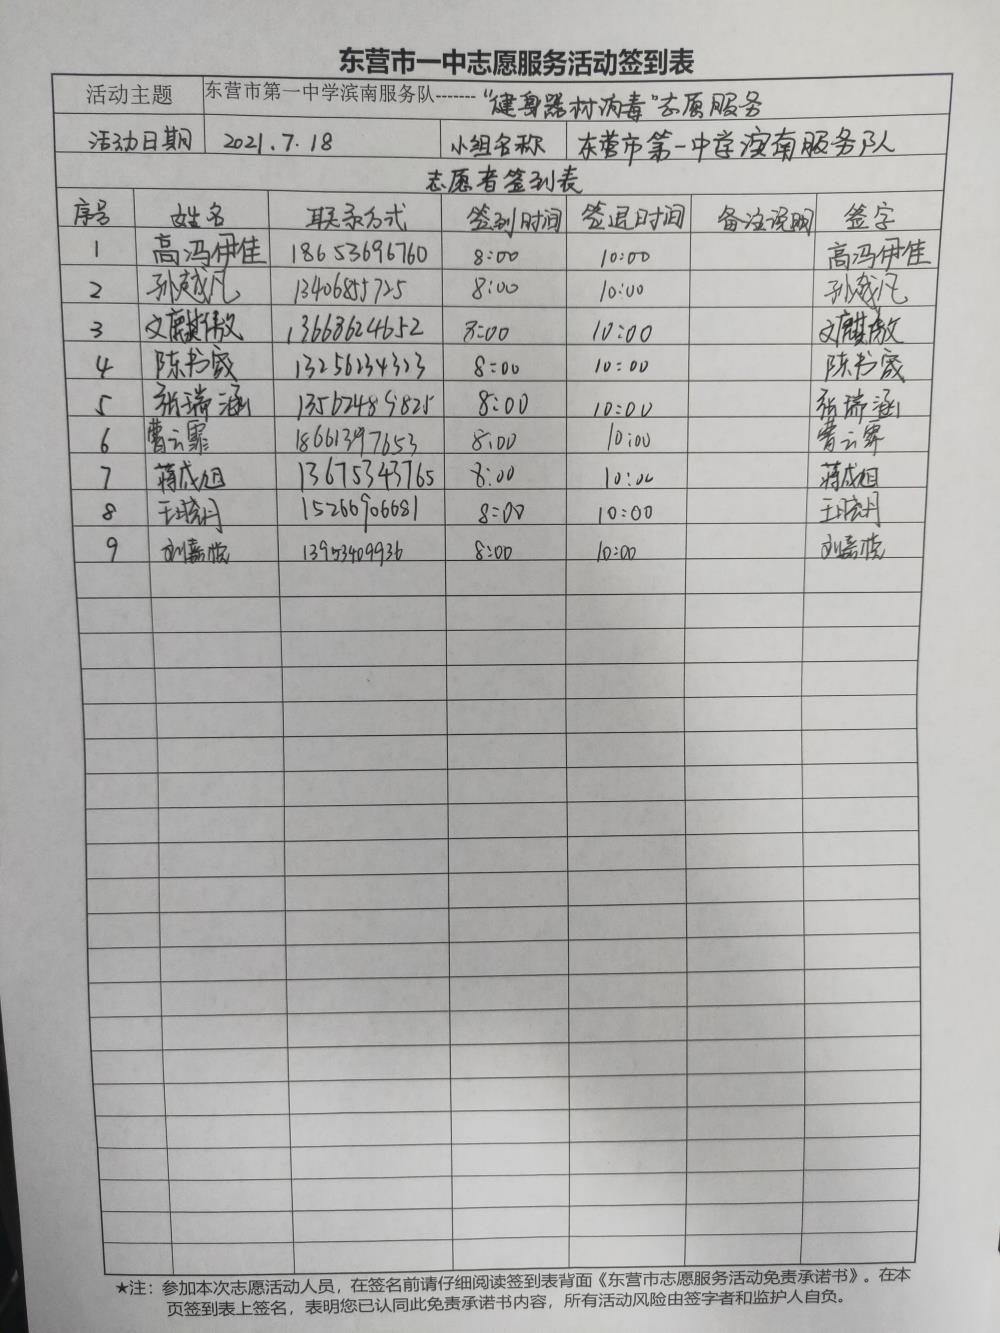 东营市一中志愿服务活动签到表
活动主题 东营市第一中学滨南服务队-------“健身器材消毒”志愿服务
活动日期 2021.7.18 小组名称 东营市第一中学滨南服务队
志愿者签到表
序号 姓名 联系方式 签到时间 签退时间 备注说明 签字
1 高冯伊佳 18653696760 8:00 10:00 高冯伊佳
2 孙越凡 13406855725 8:00 10:00 孙越凡
3 13668624652 8:00 10:00
4 陈书宬 13256234323 8:00 10:00 陈书宬
5 张瑞涵 13562489825 8:00 10:00 张瑞涵
6 曹云霏 18661397653 8:00 10:00 曹云霏
7 蒋成旭 13675343765 8:00 10:00 蒋成旭
8 王晓丹 15266906681 8:00 10:00 王晓丹
9 刘嘉悦 13953409936 8:00 10:00 刘嘉悦
★注：参加本次志愿活动人员，在签名前请仔细阅读签到表背面《东营市志愿服务活动免责承诺书》。在本
页签到表上签名，表明您已认同此免责承诺书内容，所有活动风险由签字者和监护人自负。